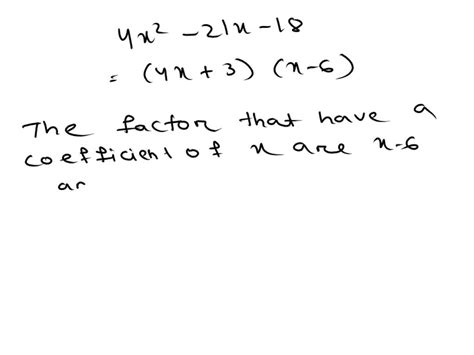 4x² - 21x - 18
= (4x + 3) (x - 6)
The factor that have a
coefficient of x are x - 6
ar